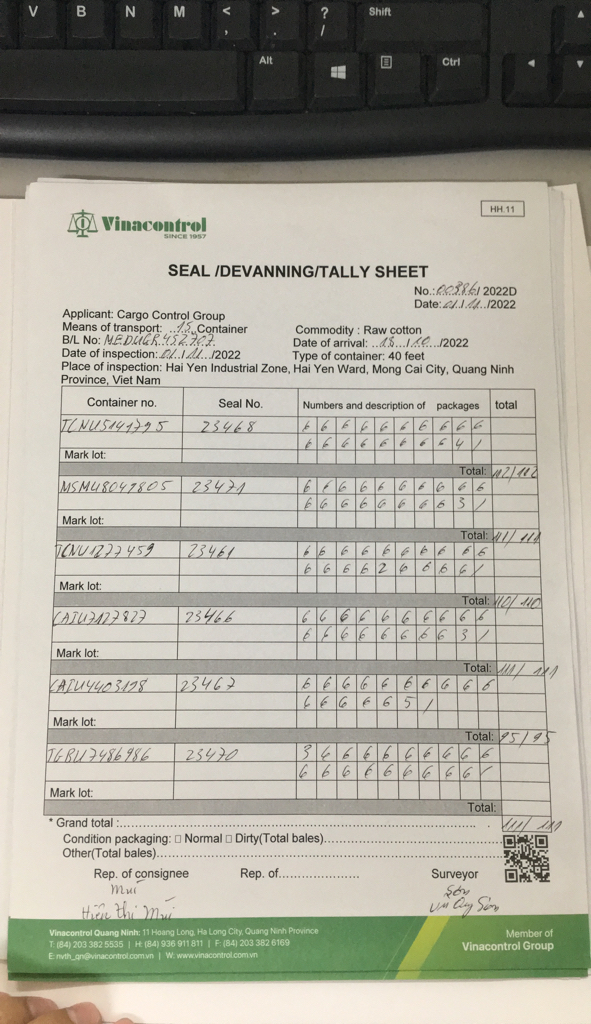 V B N M < , > . ? / Shift
Alt Ctrl
HH.11
Vinacontrol
SINCE 1957
SEAL /DEVANNING/TALLY SHEET
No.: 00386 / 2022D
Date: 01/11 /2022
Applicant: Cargo Control Group
Means of transport: 15 Container
Commodity : Raw cotton
B/L No: MEDUGR452707
Date of arrival: 18 / 10 /2022
Date of inspection: 01 / 11 /2022
Type of container: 40 feet
Place of inspection: Hai Yen Industrial Zone, Hai Yen Ward, Mong Cai City, Quang Ninh
Province, Viet Nam
Container no. Seal No. Numbers and description of packages total
TCNU5141795 23468 6 6 6 6 6 6 6 6 6 6
6 6 6 6 6 6 6 6 4 /
Mark lot:
Total: 112/112
MSMU8047805 23471 6 6 6 6 6 6 6 6 6 6
6 6 6 6 6 6 6 6 3 /
Mark lot:
Total: 111/111
TCNU1277459 23461 6 6 6 6 6 6 6 6 6 6
6 6 6 6 2 6 6 6 6 /
Mark lot:
Total: 110/110
CAIU7127827 23466 6 6 6 6 6 6 6 6 6 6
6 6 6 6 6 6 6 6 3 /
Mark lot:
Total: 111/111
CAIU4403198 23467 6 6 6 6 6 6 6 6 6 6
6 6 6 6 6 5 /
Mark lot:
Total: 95/95
TGBU7486986 23470 3 6 6 6 6 6 6 6 6 6
6 6 6 6 6 6 6 6 6 /
Mark lot:
Total:
* Grand total :.......... 111/111
Condition packaging: □ Normal □ Dirty(Total bales)..........
Other(Total bales)..........
Rep. of consignee Rep. of.................... Surveyor
Mui
Thi Mui
Sơn
Sơn
Vinacontrol Quang Ninh: 11 Hoang Long, Ha Long City, Quang Ninh Province
T: (84) 203 382 5535 | H: (84) 936 911 811 | F: (84) 203 382 6169
E: nvth_qn@vinacontrol.com.vn | W: www.vinacontrol.com.vn
Member of
Vinacontrol Group